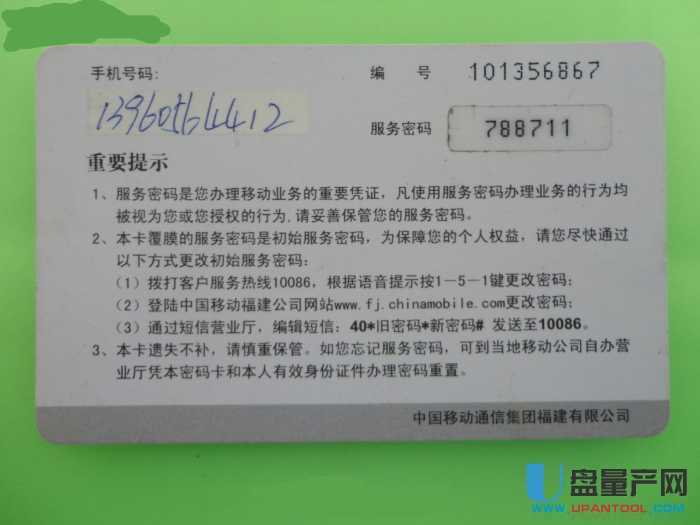 手机号码:
编 号 101356867
13960564412
服务密码 788711
重要提示
1、服务密码是您办理移动业务的重要凭证，凡使用服务密码办理业务的行为均
被视为您或您授权的行为,请妥善保管您的服务密码。
2、本卡覆膜的服务密码是初始服务密码，为保障您的个人权益，请您尽快通过
以下方式更改初始服务密码:
(1) 拨打客户服务热线10086，根据语音提示按1-5-1键更改密码;
(2) 登陆中国移动福建公司网站www.fj.chinamobile.com更改密码;
(3) 通过短信营业厅，编辑短信：40*旧密码*新密码# 发送至10086。
3、本卡遗失不补，请慎重保管。如您忘记服务密码，可到当地移动公司自办营
业厅凭本密码卡和本人有效身份证件办理密码重置。
中国移动通信集团福建有限公司
U盘量产网
WWW.UPANTOOL.COM